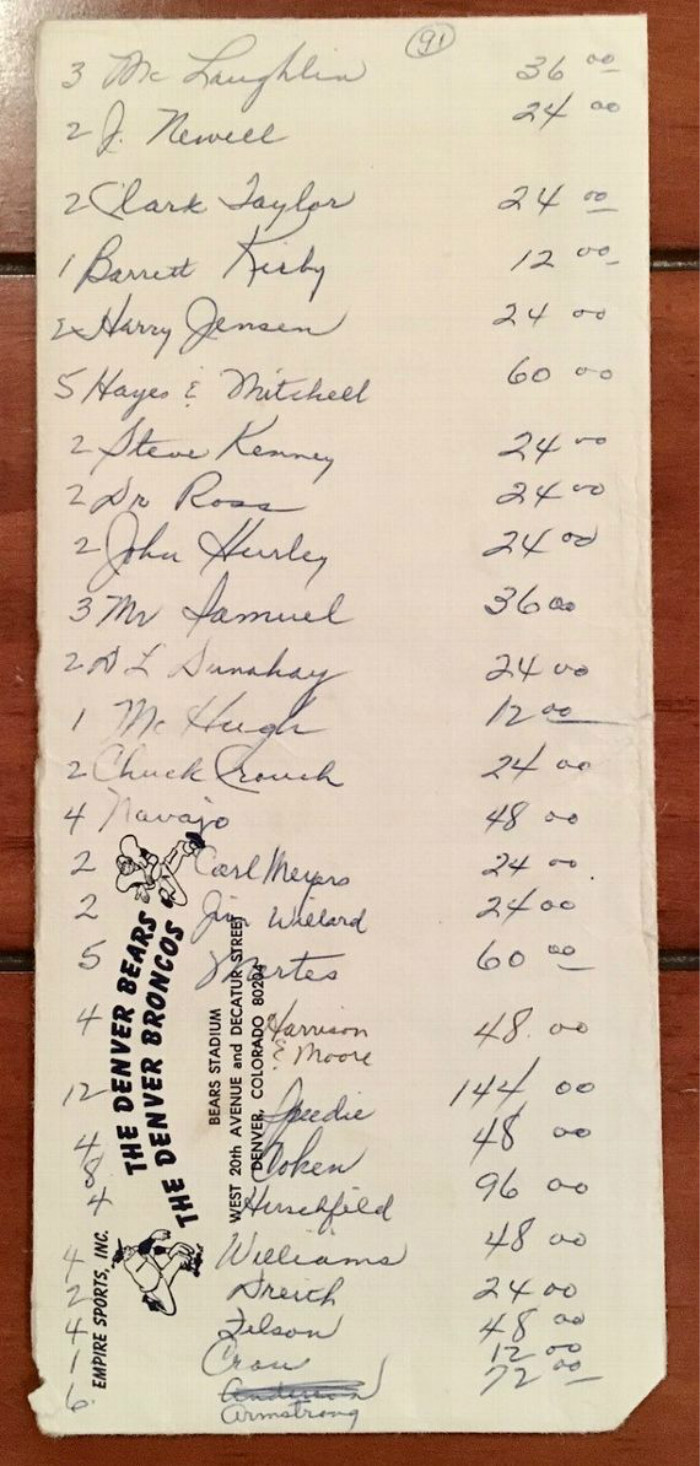 91
3 Mc Laughlin 36 00
2 J. Newell 24 00
2 Clark Taylor 24 00
1 Barrett Kirby 12 00
2 Harry Jensen 24 00
5 Hayes & Mitchell 60 00
2 Steve Kenney 24 00
2 Dr Ross 24 00
2 John Hurley 24 00
3 Mr Samuel 36 00
2 D L Dunahay 24 00
1 Mc Hugh 12 00
2 Chuck Crouch 24 00
4 Navajo 48 00
2 Carl Meyers 24 00
2 Jim Willard 24 00
5 Martes 60 00
4 Harrison 48.00
& Moore
12 Speedie 144 00
4 Coken 48 00
8
4 Hirschfild 96 00
4 Williams 48 00
2 Dreith 24 00
4 Filson 48 00
1 Crow 12 00
6 72 00
Armstrong
THE DENVER BEARS
THE DENVER BRONCOS
EMPIRE SPORTS, INC.
BEARS STADIUM
WEST 20th AVENUE and DECATUR STREET
DENVER, COLORADO 80204